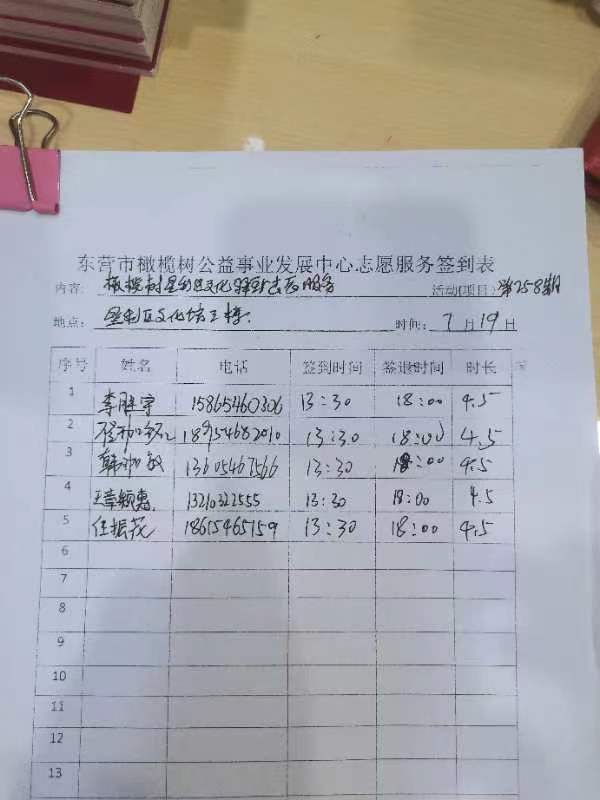 东营市橄榄树公益事业发展中心志愿服务签到表
内容: 橄榄树垦利区文化驿站志愿服务 活动(项目): 第258期
地点: 垦利区文化 时间: 7月19日
序号 姓名 电话 签到时间 签退时间 时长
1 李胜宇 15865460306 13:30 18:00 4.5
2 18954682010 13:30 18:00 4.5
3 韩淑敏 13605467566 13:30 18:00 4.5
4 王章颖惠 13210322555 13:30 18:00 4.5
5 任振花 18615465159 13:30 18:00 4.5
6
7
8
9
10
11
12
13